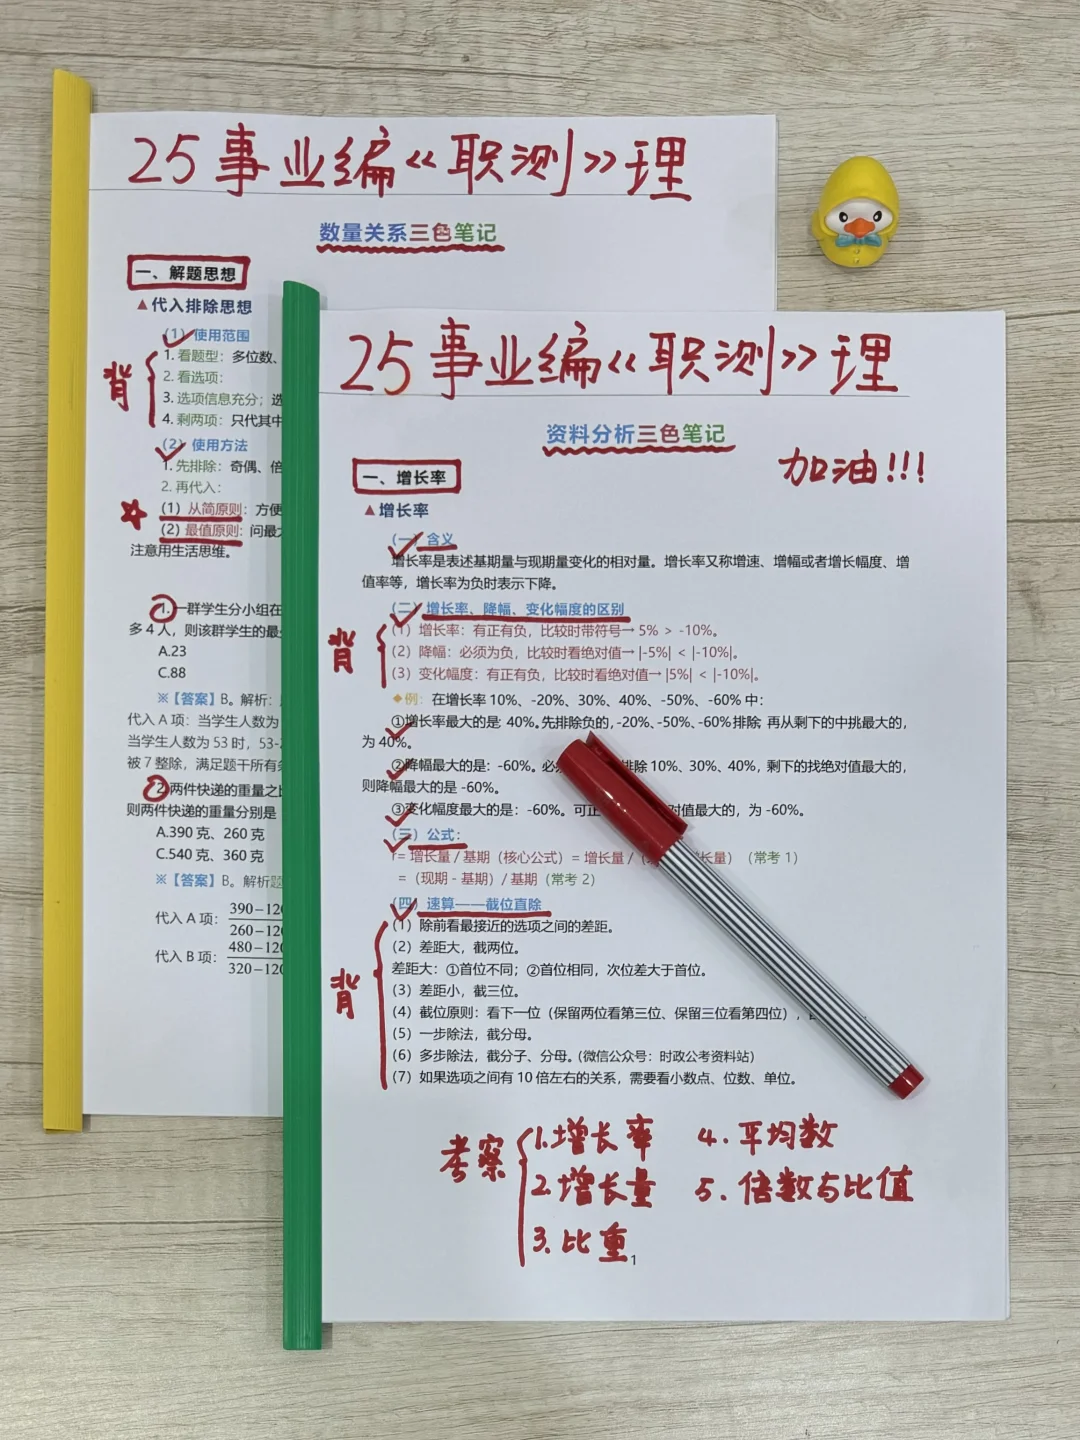 25事业编《职测》理
数量关系三色笔记
一、解题思想
▲代入排除思想
(1)使用范围
背
1. 看题型：多位数、
2. 看选项：
3. 选项信息充分；选
4. 剩两项：只代其中
(2)使用方法
1. 先排除：奇偶、倍
2. 再代入：
(1)从简原则：方便
(2)最值原则：问最大
注意用生活思维。
1.一群学生分小组在
多 4 人，则该群学生的最
A.23
C.88
※【答案】B。解析：
代入 A 项：当学生人数为
当学生人数为 53 时，53-
被 7 整除，满足题干所有条
2.两件快递的重量之比
则两件快递的重量分别是
A.390 克、260 克
C.540 克、360 克
※【答案】B。解析题
代入 A 项：390-120
260-120
代入 B 项：480-120
320-120
25事业编《职测》理
资料分析三色笔记
加油!!!
一、增长率
▲增长率
(一)含义
增长率是表述基期量与现期量变化的相对量。增长率又称增速、增幅或者增长幅度、增
值率等，增长率为负时表示下降。
(二)增长率、降幅、变化幅度的区别
背
(1)增长率：有正有负，比较时带符号→ 5% > -10%。
(2)降幅：必须为负，比较时看绝对值→ |-5%| < |-10%|。
(3)变化幅度：有正有负，比较时看绝对值→ |5%| < |-10%|。
◆例：在增长率 10%、-20%、30%、40%、-50%、-60% 中：
①增长率最大的是 40%。先排除负的，-20%、-50%、-60% 排除 再从剩下的中挑最大的，
为 40%。
②降幅最大的是：-60%。必 排除 10%、30%、40%，剩下的找绝对值最大的，
则降幅最大的是 -60%。
③变化幅度最大的是：-60%。可正 对值最大的，为 -60%。
(三)公式：
r= 增长量 / 基期（核心公式）= 增长量 /（ 长量）（常考 1）
=（现期 - 基期）/ 基期（常考 2）
(四)速算——截位直除
背
(1)除前看最接近的选项之间的差距。
(2)差距大，截两位。
差距大：①首位不同；②首位相同，次位差大于首位。
(3)差距小，截三位。
(4)截位原则：看下一位（保留两位看第三位、保留三位看第四位），
(5)一步除法，截分母。
(6)多步除法，截分子、分母。（微信公众号：时政公考资料站）
(7)如果选项之间有 10 倍左右的关系，需要看小数点、位数、单位。
考察
1.增长率 4.平均数
2.增长量 5.倍数与比值
3.比重
1